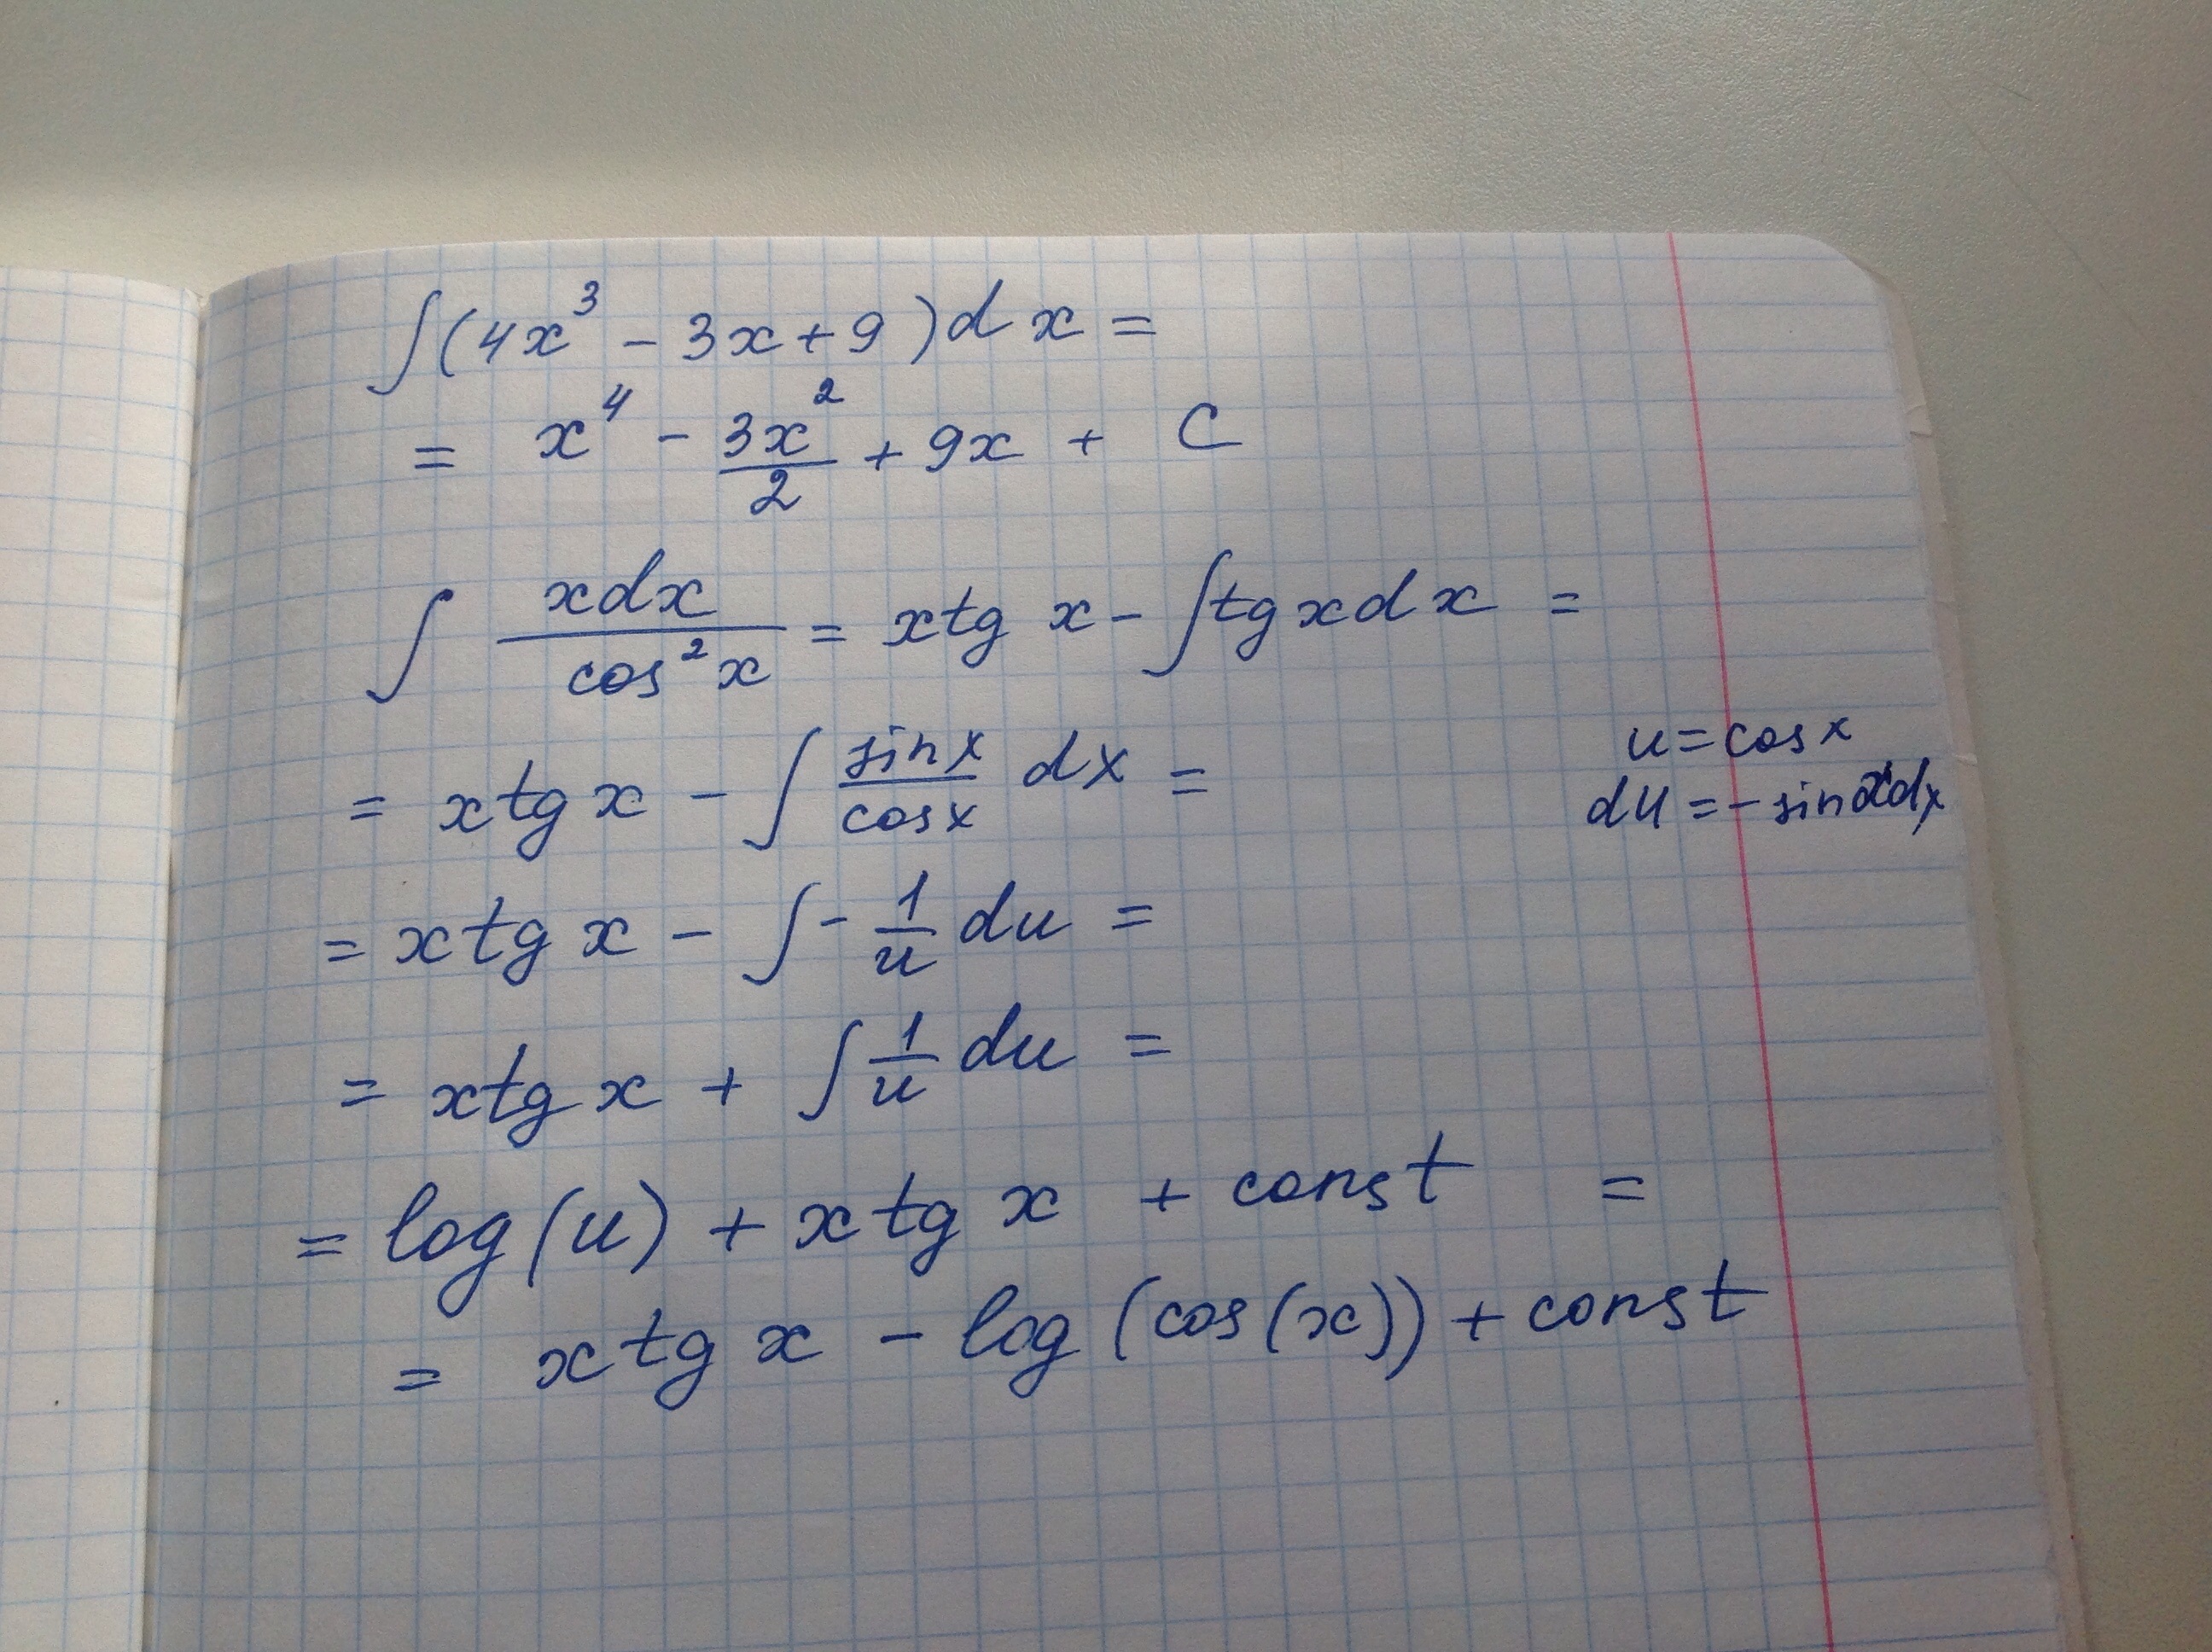 ∫(4x³ - 3x + 9)dx =
= x⁴ - 3x²/2 + 9x + C
∫ xdx/cos²x = xtg x - ∫tg x dx =
= xtg x - ∫ sinx/cosx dx =
u = cosx
du = - sinxdx
= xtg x - ∫ - 1/u du =
= xtg x + ∫ 1/u du =
= log(u) + xtg x + const =
= xtg x - log(cos(x)) + const